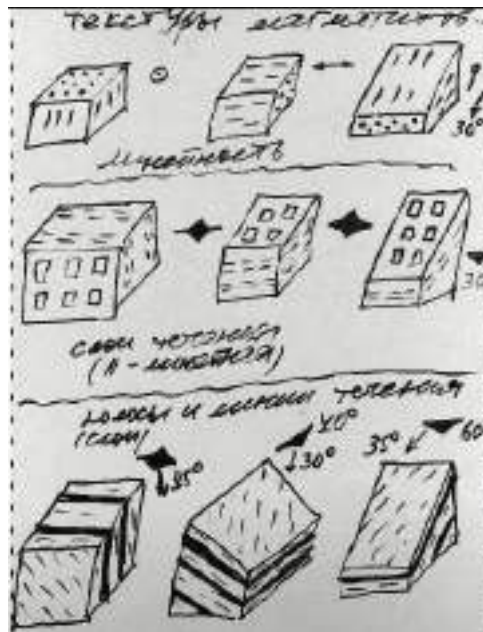 текстуры магматитов
30°
линейность
30
слои течения
(п-линейная)
полосы и линии течения
(слои)
45°
40°
30°
35°
60